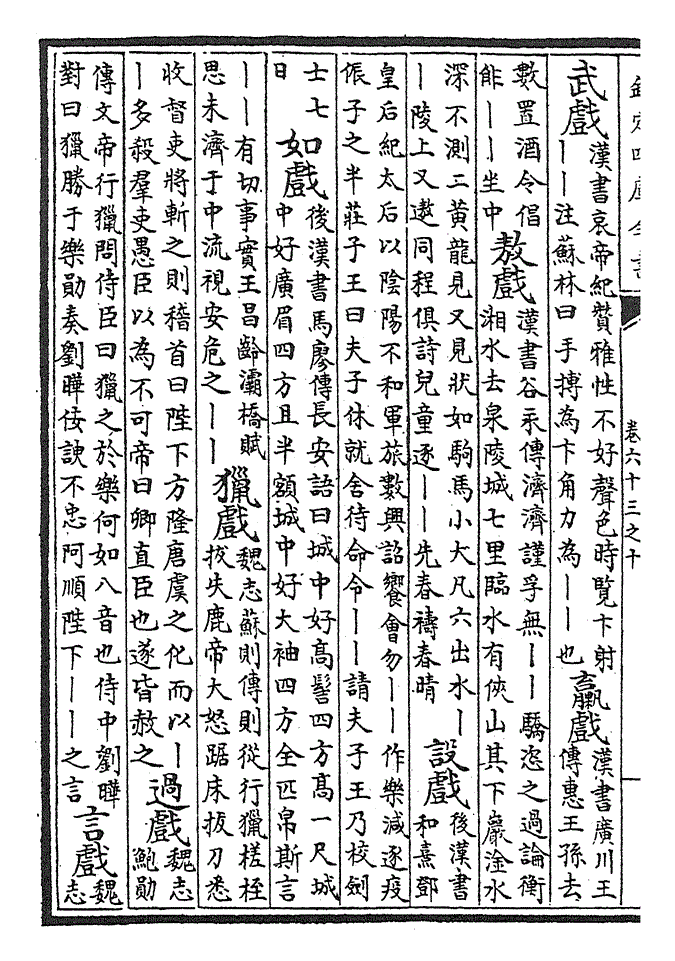 欽定四庫全書
卷六十三之十
武戲
漢書哀帝紀贊雅性不好聲色時覽卞射
丨丨注蘇林曰手搏為卞角力為丨丨也
臝戲
漢書廣川王
傳惠王孫去
數置酒令倡
俳丨丨坐中
敖戲
漢書谷永傳濟濟謹孚無丨丨驕恣之過論衡
湘水去泉陵城七里臨水有俠山其下巖淦水
深不測二黃龍見又見狀如駒馬小大凡六出水丨
丨陵上又遨同程俱詩兒童逐丨丨先春禱春晴
設戲
後漢書
和熹鄧
皇后紀太后以陰陽不和軍旅數興詔饗會勿丨丨作樂減逐疫
侲子之半莊子王曰夫子休就舍待命令丨丨請夫子王乃校劍
士七
日
如戲
後漢書馬廖傳長安語曰城中好高髻四方高一尺城
中好廣眉四方且半額城中好大袖四方全匹帛斯言
丨丨有切事實王昌齡灞橋賦
思未濟于中流視安危之丨丨
獵戲
魏志蘇則傳則從行獵槎桎
拔失鹿帝大怒踞床拔刀悉
收督吏將斬之則稽首曰陛下方隆唐虞之化而以丨
丨多殺羣吏愚臣以為不可帝曰卿直臣也遂皆赦之
過戲
魏志
鮑勛
傳文帝行獵問侍臣曰獵之於樂何如八音也侍中劉曄
對曰獵勝于樂勛奏劉曄佞諛不忠阿順陛下丨丨之言
言戲
魏
志